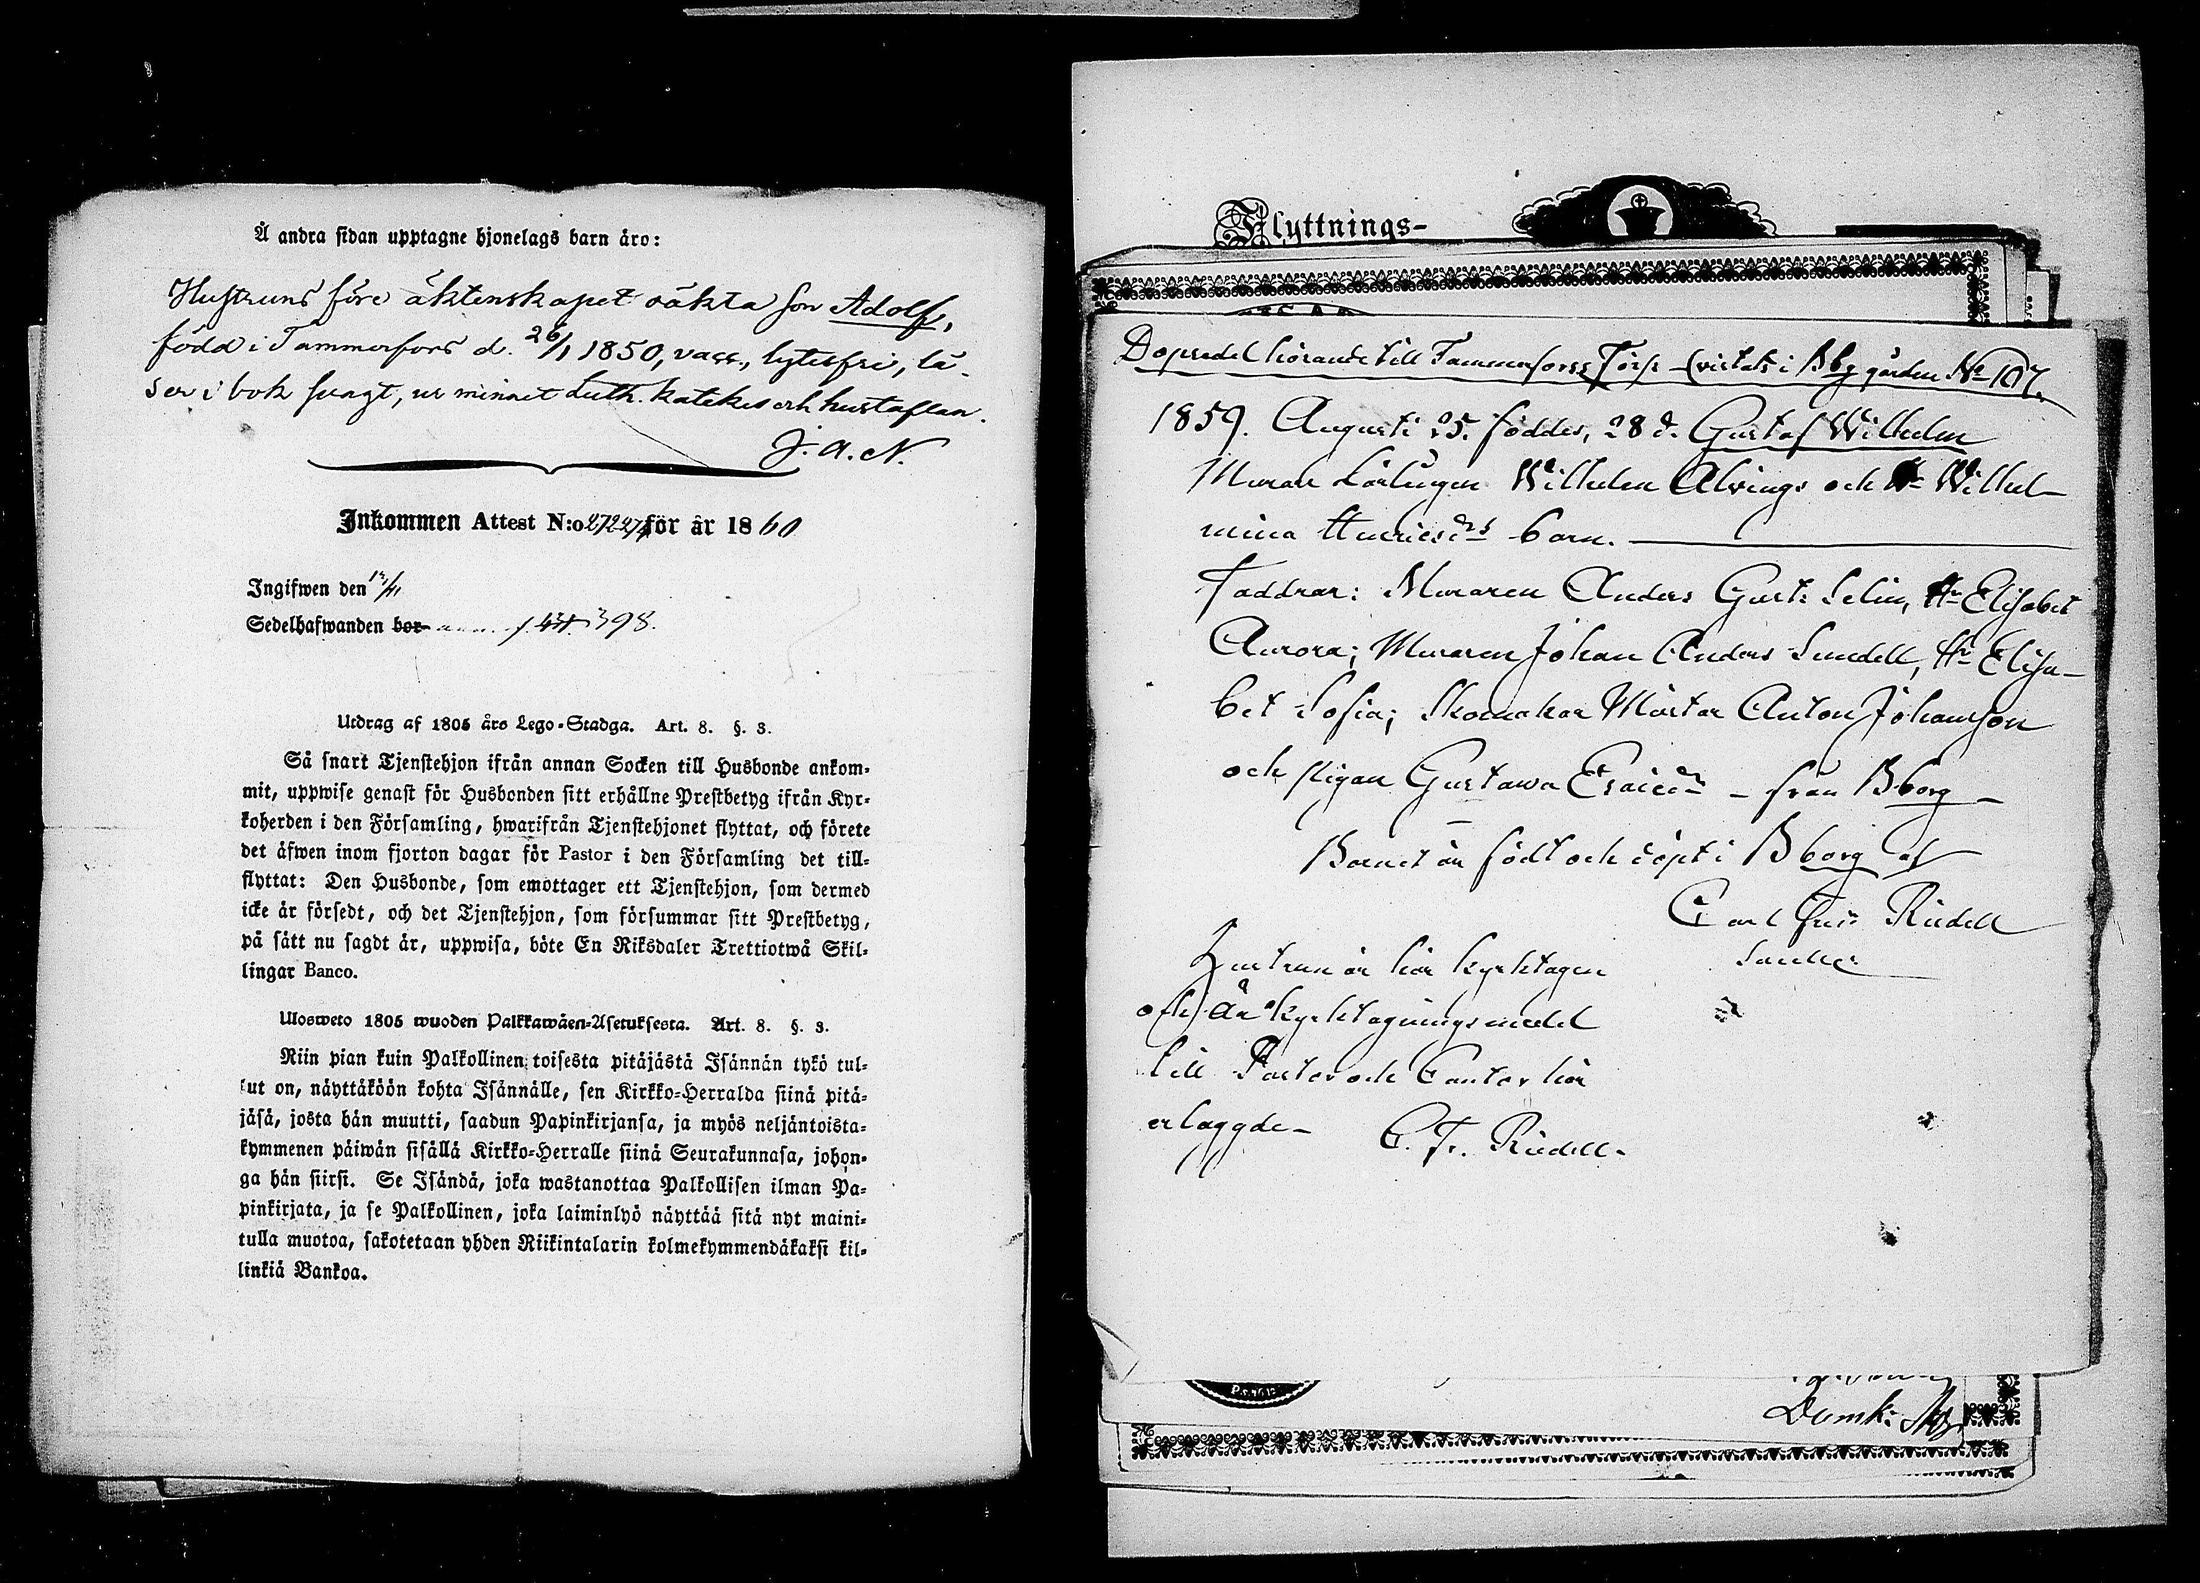 Å andra sidan upptagne hjonelags barn äro:
Hustruns före äktenskapet oäkta son Adolf,
född i Tammerfors d. 26/1 1850, vacc., lytesfri, lä-
ser i bok svagt, ur minnet Luth. katekes och hustaflan.
J. A. N.
Inkommen Attest N:o för år 1860
Ingifwen den
Sedelhafwanden bor 398.
Utdrag af 1805 års Lego-Stadga. Art. 8. §. 3.
Så snart Tjenstehjon ifrån annan Socken till Husbonde ankom-
mit, uppwise genast för Husbonden sitt erhållne Prestbetyg ifrån Kyr-
koherden i den Församling, hwarifrån Tjenstehjonet flyttat, och förete
det äfwen inom fjorton dagar för Pastor i den Församling det till-
flyttat: Den Husbonde, som emottager ett Tjenstehjon, som dermed
icke är försedt, och det Tjenstehjon, som försummar sitt Prestbetyg,
på sätt nu sagdt är, uppwisa, böte En Riksdaler Trettiotwå Skil-
lingar Banco.
Ulosweto 1805 wuoden Palkkawäen-Asetuksesta. Art. 8. §. 3.
Niin pian kuin Palkollinen toisesta pitäjästä Isännän tykö tul-
lut on, näyttäköön kohta Isännälle, sen Kirkko-Herralda siinä pitä-
jäsä, josta hän muutti, saadun Papinkirjansa, ja myös neljäntoista-
kymmenen päiwän sisällä Kirkko-Herralle siinä Seurakunnasa, johon-
ga hän siirsi. Se Isändä, joka wastanottaa Palkollisen ilman Pa-
pinkirjata, ja se Palkollinen, joka laiminlyö näyttää sitä nyt maini-
tulla muotoa, sakotetaan yhden Riikintalarin kolmekymmendäkaksi kil-
linkiä Bankoa.
Flyttnings-
Dopsedel hörande till Tammerforss Förs. (vistats i Bbg gården No 107.
1859. Augusti 25. föddes, 28 d. Gustaf Wilhelm
Murare Lärlingen Wilhelm Alvings och Hu Wilhel-
mina Henricsdrs barn.
Faddrar: Muraren Anders Gust: Selin, Hu Elisabet
Aurora; Muraren Johan Anders Sundell, Hu Elisa-
bet Sofia; Skomakar Mästar Anton Johansson
och pigan Gustava Esaiedr - från Bborg -
Barnet är födt och döpt i Bborg af
Carl Fredr Riedell
Hustrun är här kyrktagen
och är kyrktagningsmedel
till Pastor och Cantor här
erlaggde - C. Fr. Riedell.
Domk: